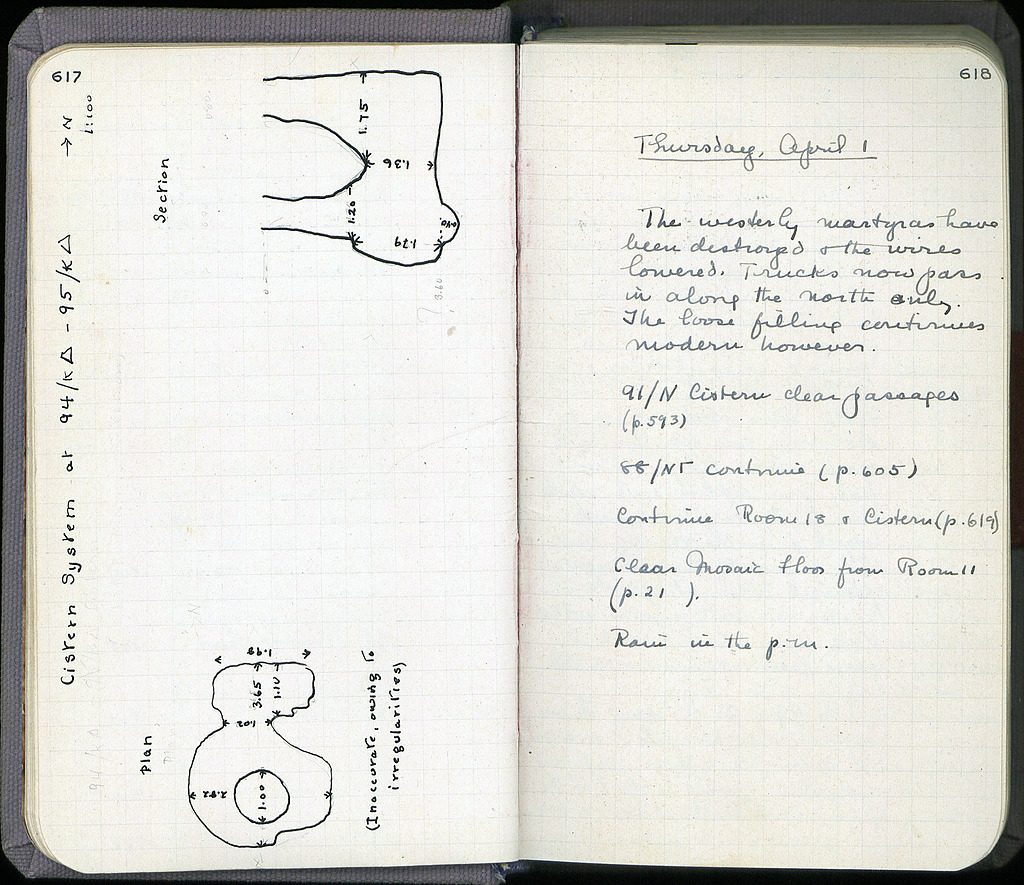 617
Cistern System at 94/ΚΔ - 95/ΚΔ → N
1:100
Section
1.75
1.36
1.20
1.79
3.60
Plan
1.98
3.65
1.10
1.02
1.00
(Inaccurate, owing to
irregularities)
618
Thursday, April 1
The westerly martyras have
been destroyed & the wires
lowered. Trucks now pass
in along the north only.
The loose filling continues
modern however.
91/N Cistern clear passages
(p.593)
88/ΝΓ continue (p.605)
Continue Room 18 & Cistern (p.619)
Clear Mosaic floor from Room 11
(p.21 ).
Rain in the p.m.